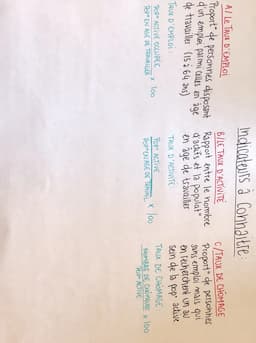 Indicateurs à Connaître
A/ LE TAUX D'EMPLOI
Proport° de personnes disposant
d'un emploi parmi celles en âge
de travailler (15 à 64 ans)
TAUX D'EMPLOI:
POP° ACTIVE OCCUPÉE
POP° EN AGE DE TRAVAILLER x 100
B/ LE TAUX D'ACTIVITÉ
Rapport entre le nombre
d'actifs et la populat°
en âge de travailler
TAUX D'ACTIVITÉ
POP° ACTIVE
POP° EN AGE DE TRAVAIL. x 100
C/ TAUX DE CHOMAGE
Proport° de personnes
sans emploi mais qui
en recherchent un au
sein de la pop° active
TAUX DE CHOMAGE:
NOMBRE DE CHOMEURS x 100
POP° ACTIVE